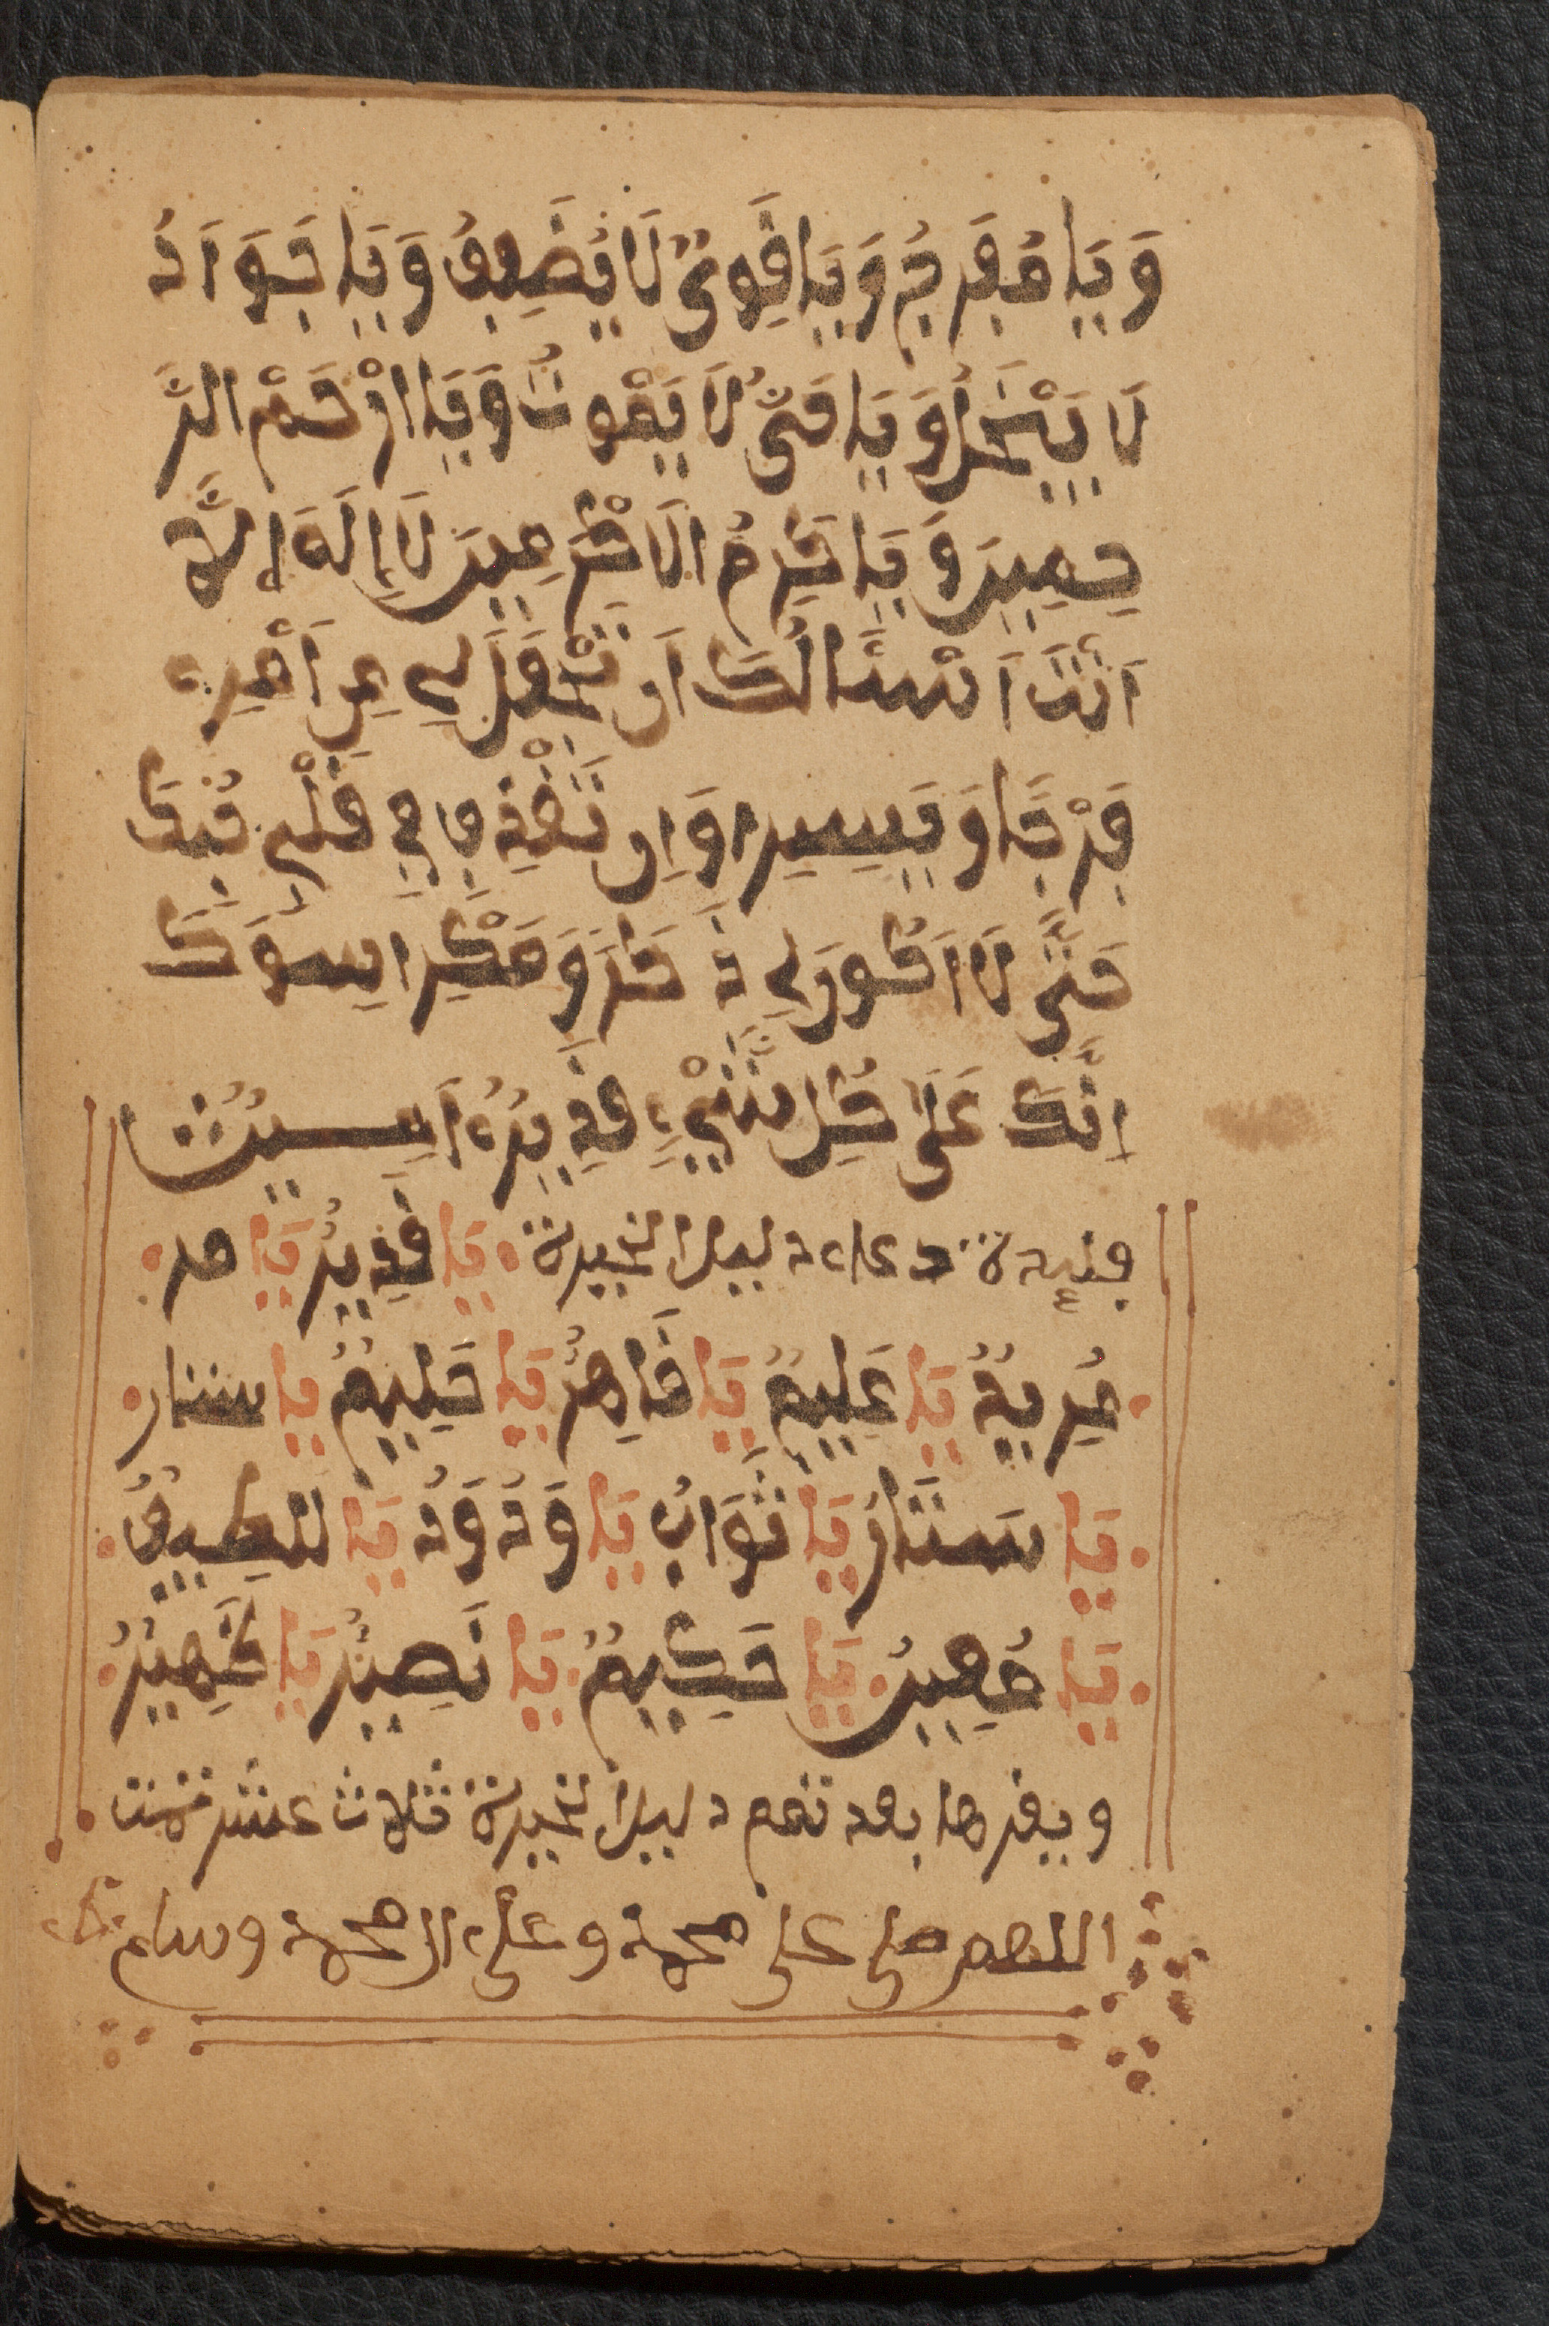 وَيَا مُفَرِجُ وَيَا قَوِىُّ لَا يَضَعِيفُ وَيَا جَوَادُ
لَا يَبْخَلُ وَيَا حَىٌّ لَا يَمْوتُ وَيَا ارْحَمْ الرَّ
حِمِينَ وَيَا كَرِمُ الَاكْرَمِينَ لَا إِلَهَ إِلَّا
اَنْتَ اَسْئَالُكَ اَن تَجْعَلَ لِي مِن اَمْرِي
فَرْجَا وَيَسِيرا وَاِن تَقْذِف فِي قَلْبِي حُبكَ
حَتَّى لَا اَكُونَ لِي ذَكَرَ وَمَكِرا سِوَكَ
اِنَّكَ عَلَى كُلِ شَيْءٍ قَدِيرُ اَمِيــنُ
دعاء دليلا لخيرة يَا قَدِيرُ يَا مر
مُرِيدُ يَا عَلِيمُ يَا قَاهِرُ يَا حَلِيمُ يَا ستار
يَا سَتَّارُ يَا تَوَابُ يَا وَدَودُ يَا لَطِيفُ
يَا مُهِينُ يَا حَكِيمُ يَا نَصِيرُ يَا ظَهِيرُ
ويقرها بعد تمم دليلا لخيرة ثلاث عشر
اللهم صلى على محمد وعلى ال محمد وسلم